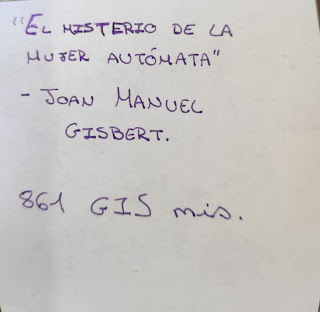 "EL MISTERIO DE LA
MUJER AUTÓMATA"
- JOAN MANUEL
GISBERT.
861 GIS mis.